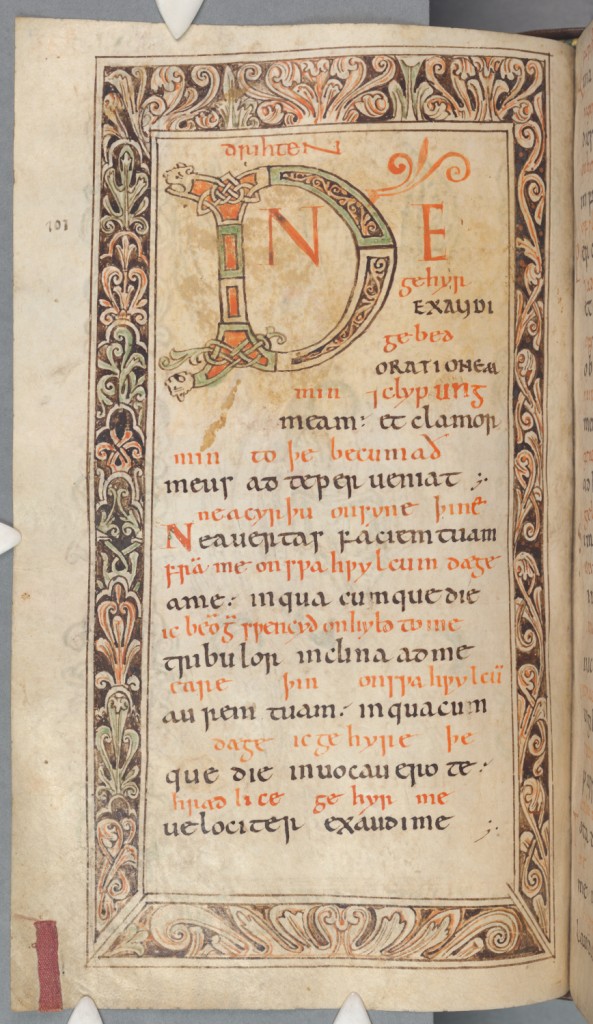 101
drihten
D N E
gehyr
EXAUDI
gebed
ORATIONEM
min ⁊clypung
meam: et clamor
min to þe becumað
meus ad te per veniat ;,
ne acyr þu onsyne þine
Ne avertas faciem tuam
frā me on swa hwylcum dæge
a me: in qua cumque die
ic beō gswenced onhyld to me
tribulor inclina ad me
eare þin on swa hwylcū
aurem tuam. in quacum
dæge ic ge hyre þe
que die invocavero te:
hrad lice ge hyr me
velociter exaudi me ;,